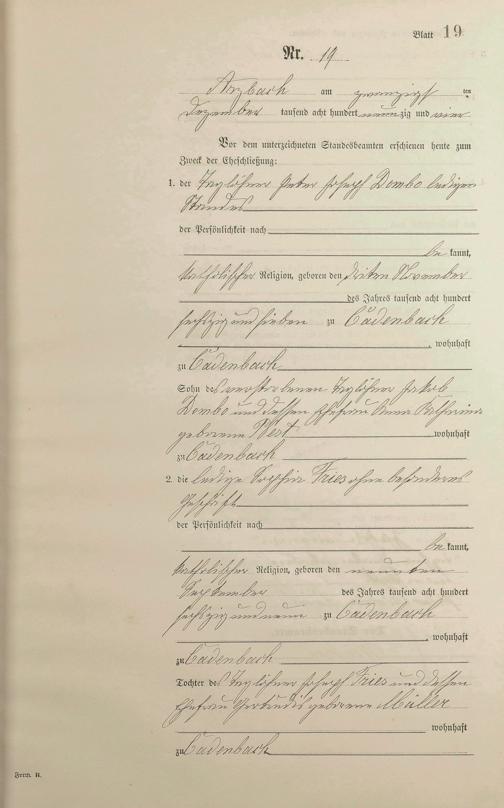 Blatt 19
Nr. 19
Arzbach am zwanzigsten
Dezember tausend acht hundert neunzig und vier
Vor dem unterzeichneten Standesbeamten erschienen heute zum
Zweck der Eheschließung:
1. der Taglöhner Peter Joseph Dombo ledigen
Standes
der Persönlichkeit nach
bekannt,
katholischer Religion, geboren den dritten November
des Jahres tausend acht hundert
sechszig und sieben zu Cadenbach
, wohnhaft
zu Cadenbach
Sohn des verstorbenen Taglöhner Jakob
Dombo und dessen Ehefrau Anna Katharina
geborene wohnhaft
zu Cadenbach
2. die ledige Sophia Fries ohne besonderes
Geschäft
der Persönlichkeit nach
bekannt,
katholischer Religion, geboren den neunten
September des Jahres tausend acht hundert
sechszig und neun zu Cadenbach
, wohnhaft
zu Cadenbach
Tochter des Taglöhner Joseph Fries und dessen
Ehefrau Gertrudis geborene Müller
wohnhaft
zu Cadenbach
Form. B.